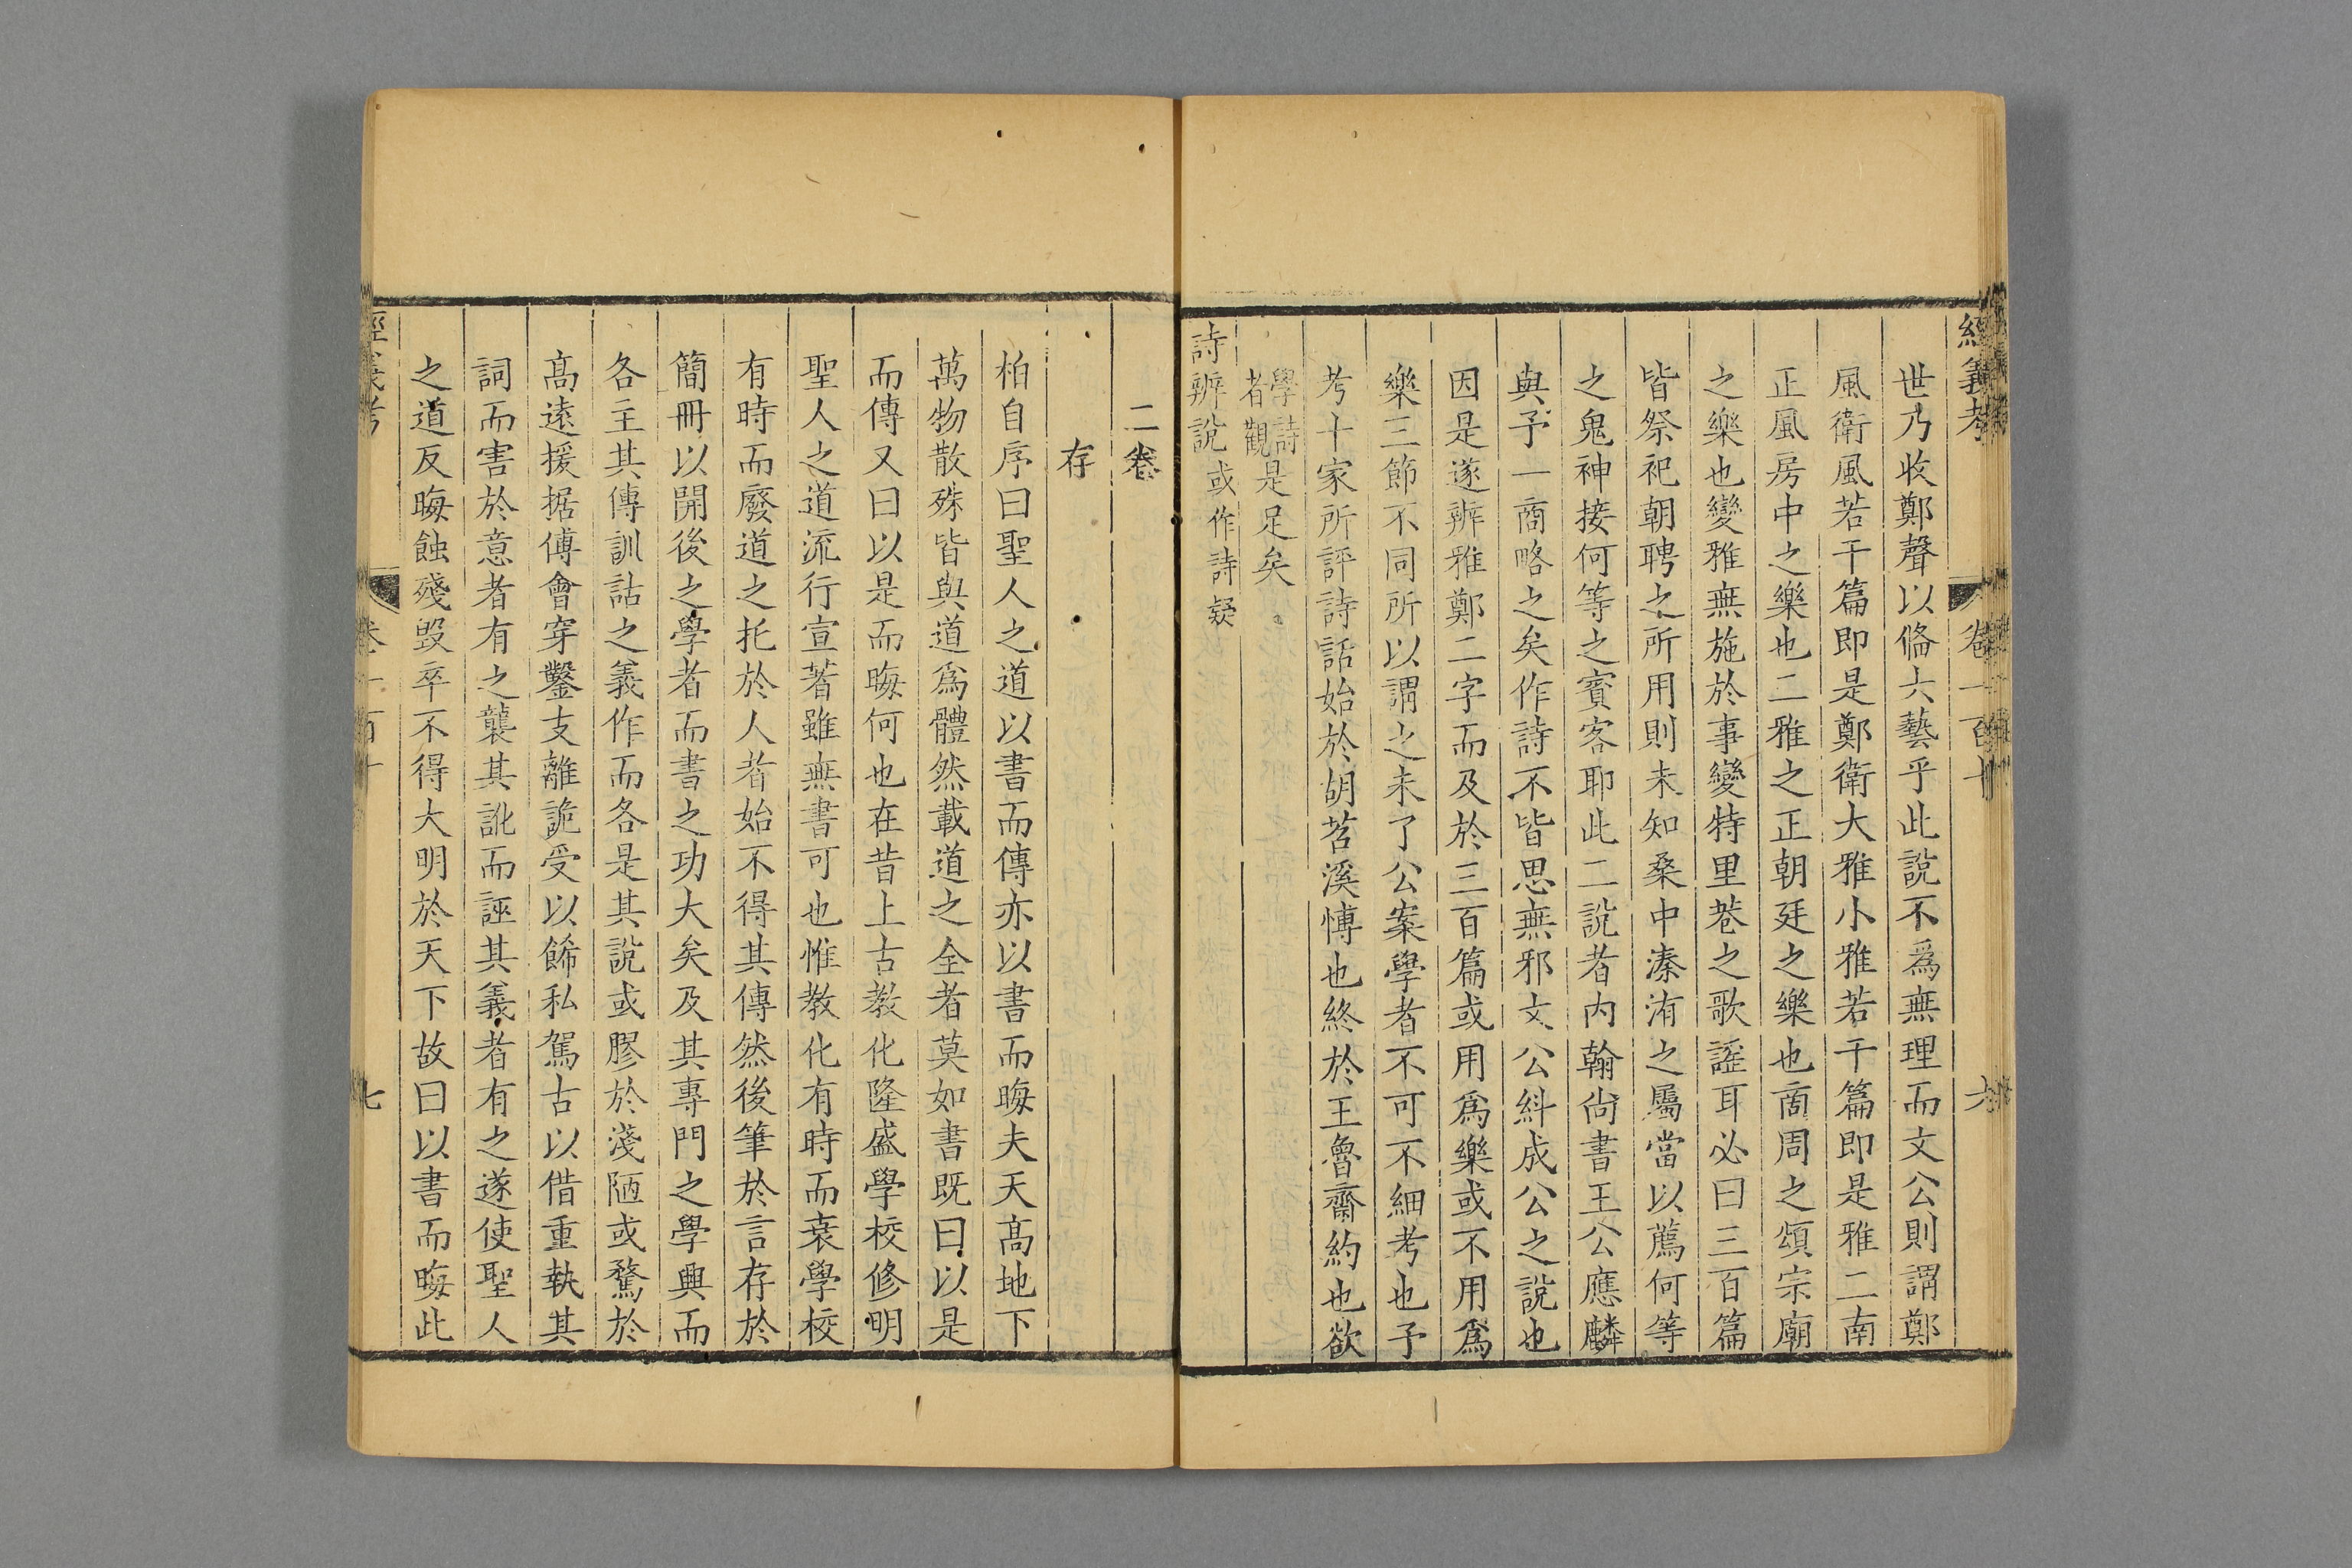 經義考 卷一百十 六
世乃收鄭聲以俻六藝乎此說不爲無理而文公則謂鄭
風衛風若干篇即是鄭衛大雅小雅若干篇即是雅二南
正風房中之樂也二雅之正朝廷之樂也商周之頌宗廟
之樂也變雅無施於事變特里巷之歌謡耳必曰三百篇
皆祭祀朝聘之所用則未知桑中溱洧之屬當以薦何等
之鬼神接何等之賓客耶此二說者内翰尚書王公應麟
與予一商略之矣作詩不皆思無邪文公糾成公之說也
因是遂辨雅鄭二字而及於三百篇或用爲樂或不用爲
樂三節不同所以謂之未了公案學者不可不細考也予
考十家所評詩話始於胡苕溪慱也終於王魯齋約也欲
學詩者觀是足矣
詩辨說或作詩疑
二卷
存
柏自序曰聖人之道以書而傳亦以書而晦夫天髙地下
萬物散殊皆與道爲體然載道之全者莫如書既曰以是
而傳又曰以是而晦何也在昔上古教化隆盛學校修明
聖人之道流行宣著雖無書可也惟教化有時而衰學校
有時而廢道之托於人者始不得其傳然後筆於言存於
簡冊以開後之學者而書之功大矣及其專門之學興而
各主其傳訓詁之義作而各是其說或膠於淺陋或騖於
髙逺援据傅會穿鑿支離詭受以餙私駕古以借重執其
詞而害於意者有之襲其訛而誣其義者有之遂使聖人
之道反晦蝕殘毁卒不得大明於天下故曰以書而晦此
經義考 卷一百十 七